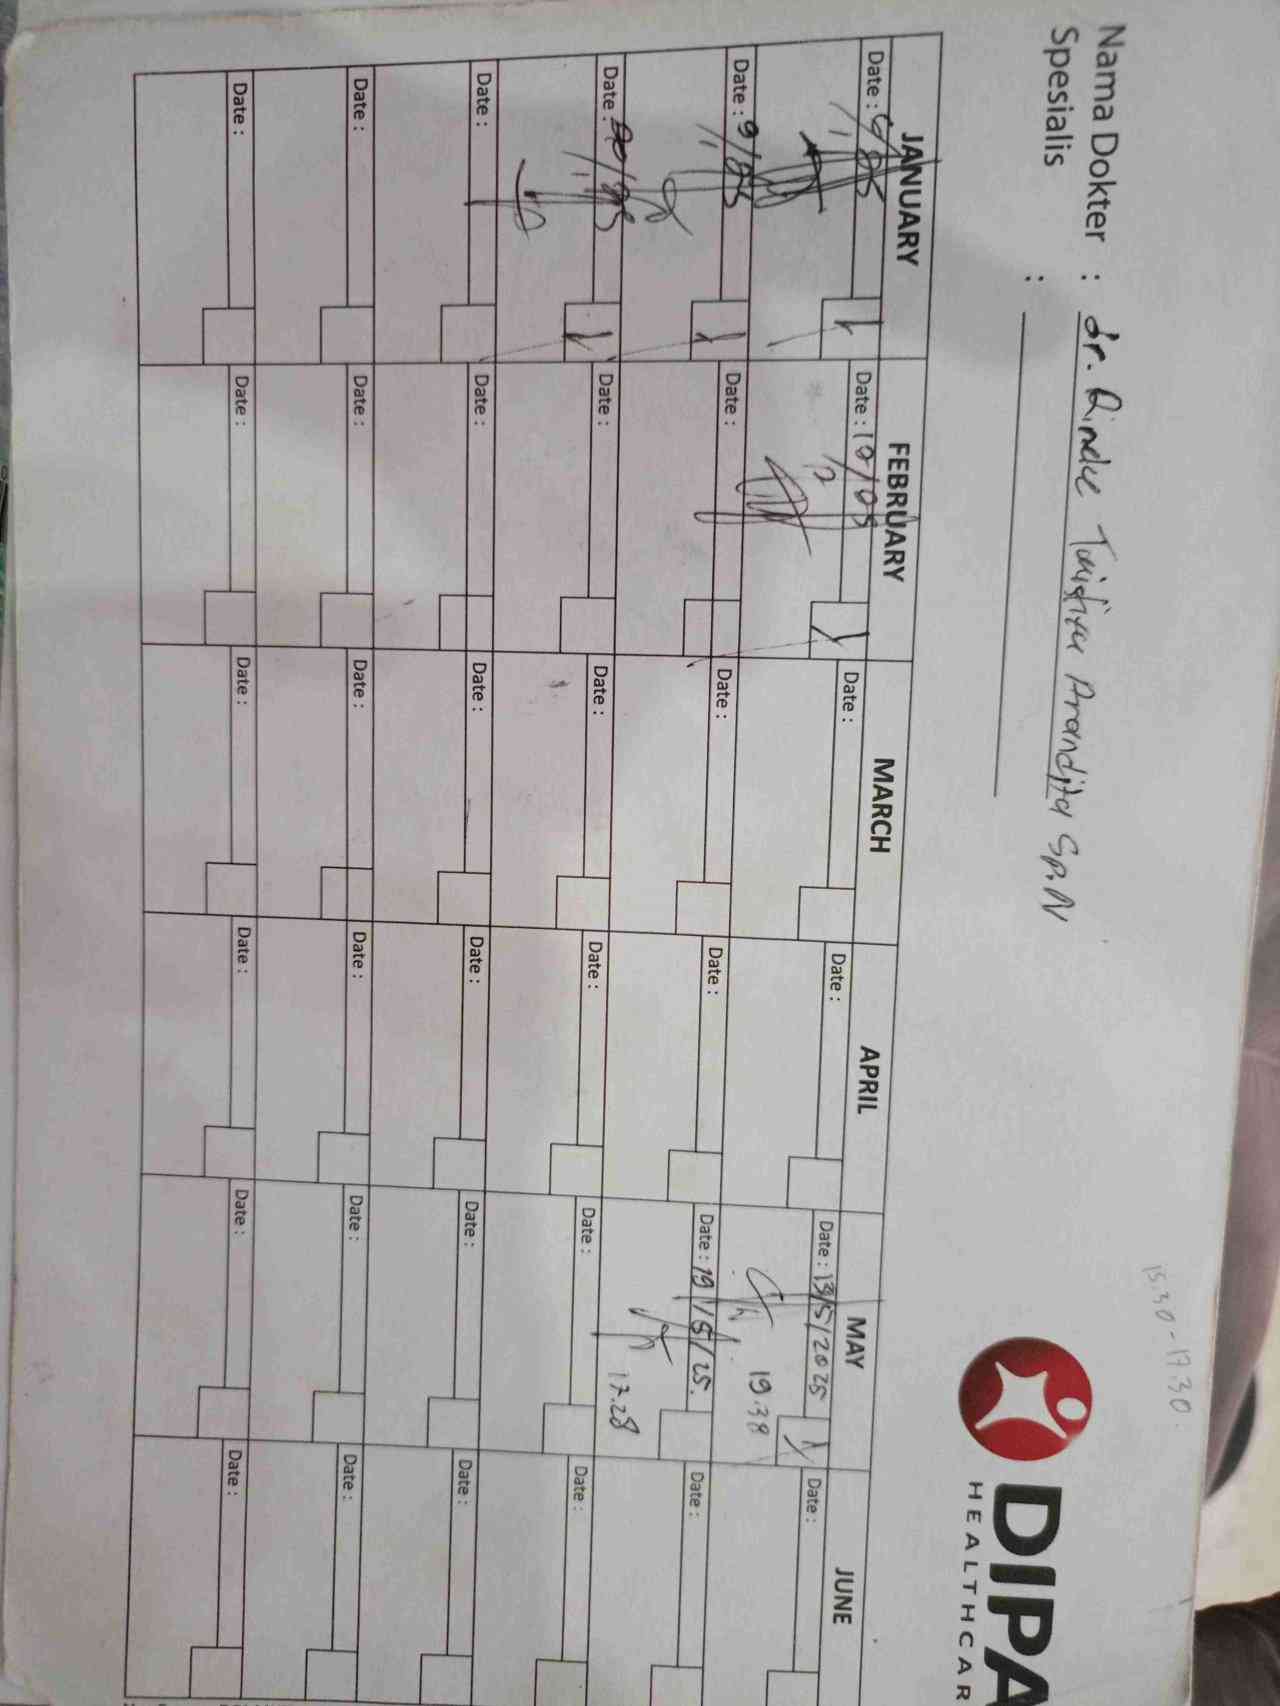 15.30 - 17.30
DIPA
HEALTHCAR
Nama Dokter : dr. Rindu Twistiya Arandjta Sp.N
Spesialis :
JANUARY FEBRUARY MARCH APRIL MAY JUNE
Date : 6/ 25 Date : 10/ 25 Date : Date : Date : 13/5/2025 Date :
19.38
Date : 9/ 25 Date : Date : Date : Date : 19/5/25. Date :
17.28
Date : Date : Date : Date : Date : Date :
Date : Date : Date : Date : Date : Date :
Date : Date : Date : Date : Date : Date :
Date : Date : Date : Date : Date : Date :